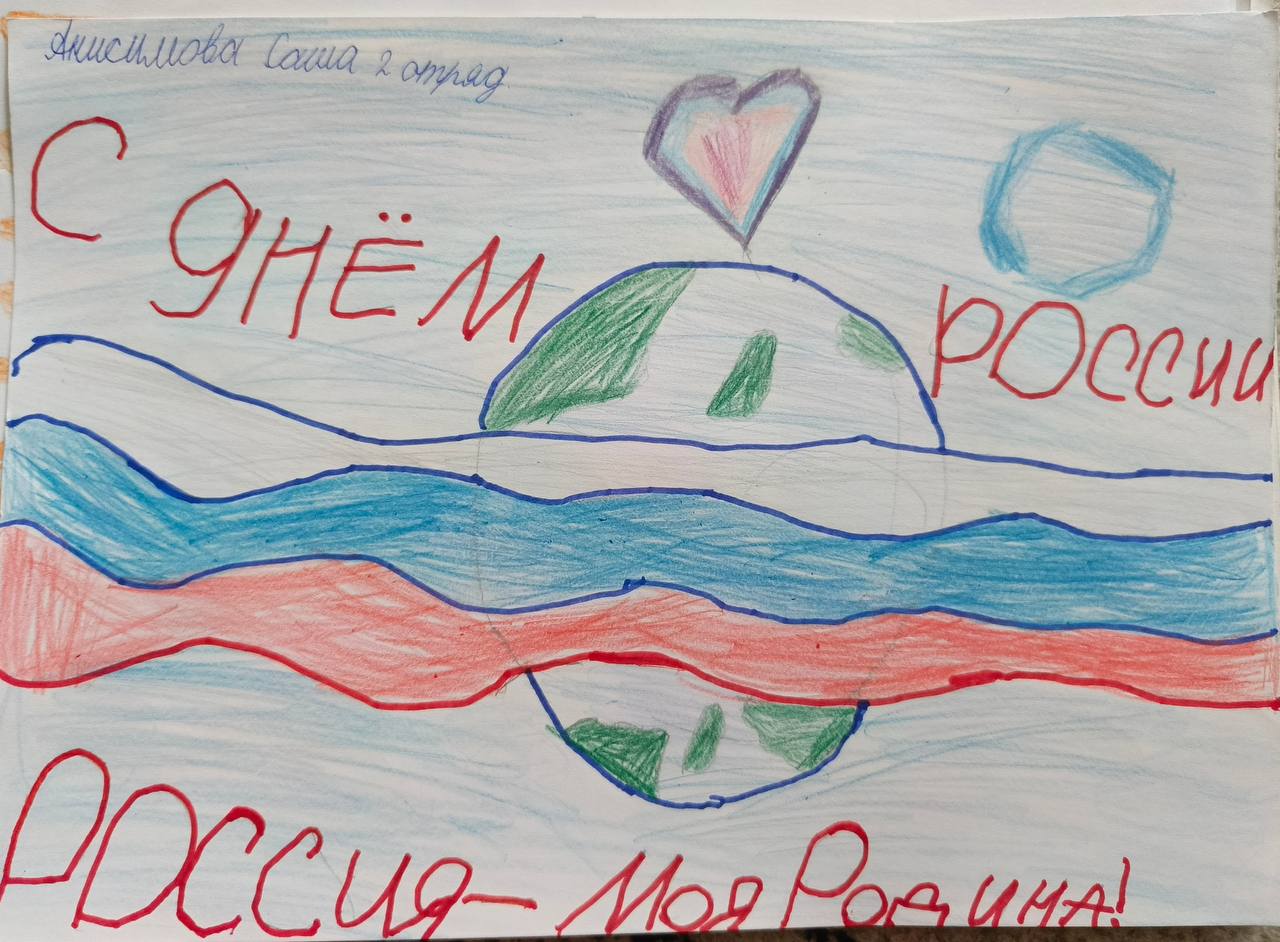 Анисимова Саша 2 отряд
С днём
России
Россия - Моя Родина!